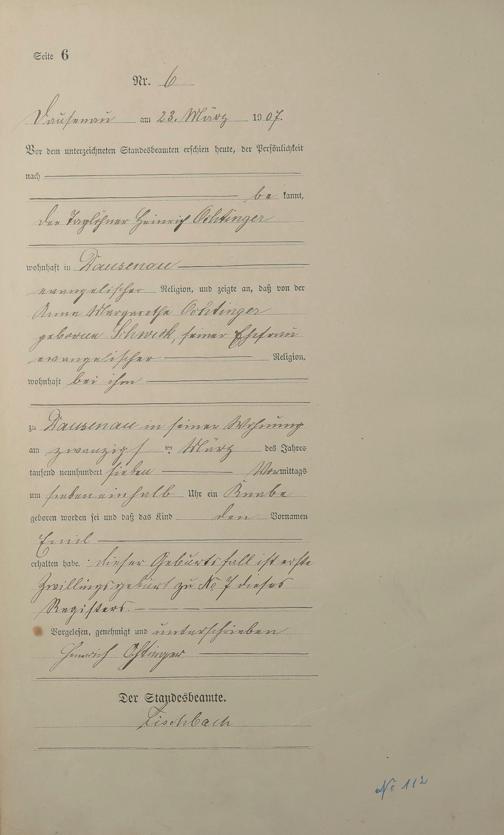 Seite 6
Nr. 6
Dausenau am 23. März 1907.
Vor dem unterzeichneten Standesbeamten erschien heute, der Persönlichkeit
nach
be kannt,
der Taglöhner Heinrich Ochtinger
wohnhaft in Dausenau
evangelischer Religion, und zeigte an, daß von der
Anna Margarethe Ochtinger
geborene Schwenk, seiner Ehefrau
evangelischer Religion,
wohnhaft bei ihm
zu Dausenau in seiner Wohnung
am zwanzigst en März des Jahres
tausend neunhundert sieben Vormittags
um sieben einhalb Uhr ein Knabe
geboren worden sei und daß das Kind den Vornamen
Emil
erhalten habe. dieser Geburtsfall ist erste
Zwillingsgeburt zu No 7 dieses
Registers.
Vorgelesen, genehmigt und unterschrieben
Heinrich Ochtinger
Der Standesbeamte.
Fischbach
No 112